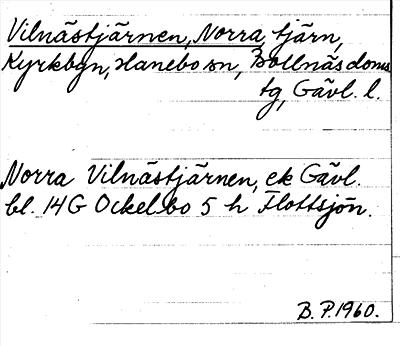 Vilnästjärnen, Norra, tjärn,
Kyrkbyn, Hanebo sn, Bollnäs doms.
tg, Gävl. l.
Norra Vilnästjärnen, ek Gävl.
bl. 14G Ockelbo 5 h Flottsjön.
B. P. 1960.